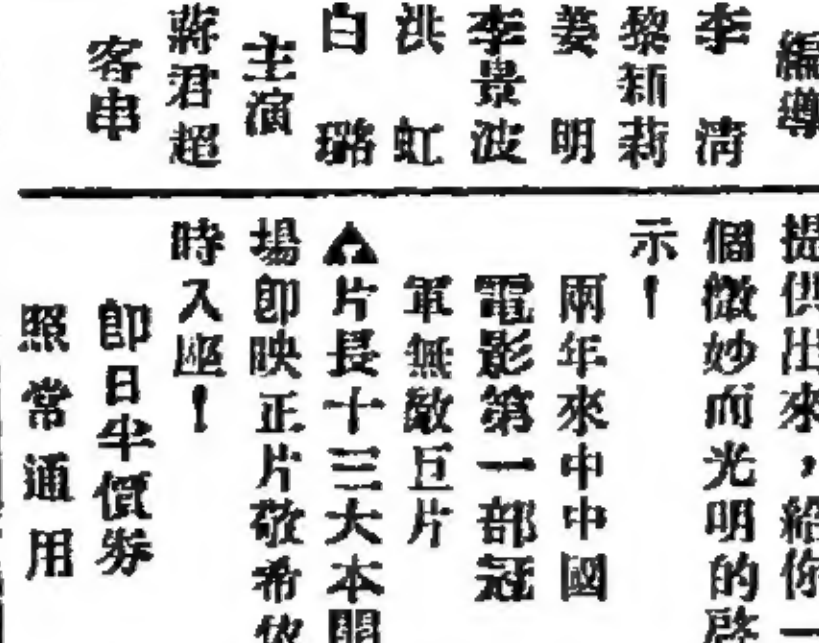 編導
李清
黎新莉
姜明
李景波
洪虹
白璐
主演
蔣君超
客串
提供出來，給你一
個微妙而光明的啓
示！
兩年來中中國
電影第一部冠
軍無敵巨片
▲片長十三大本開
場卽映正片敬希依
時入座！
卽日半價券
照常通用